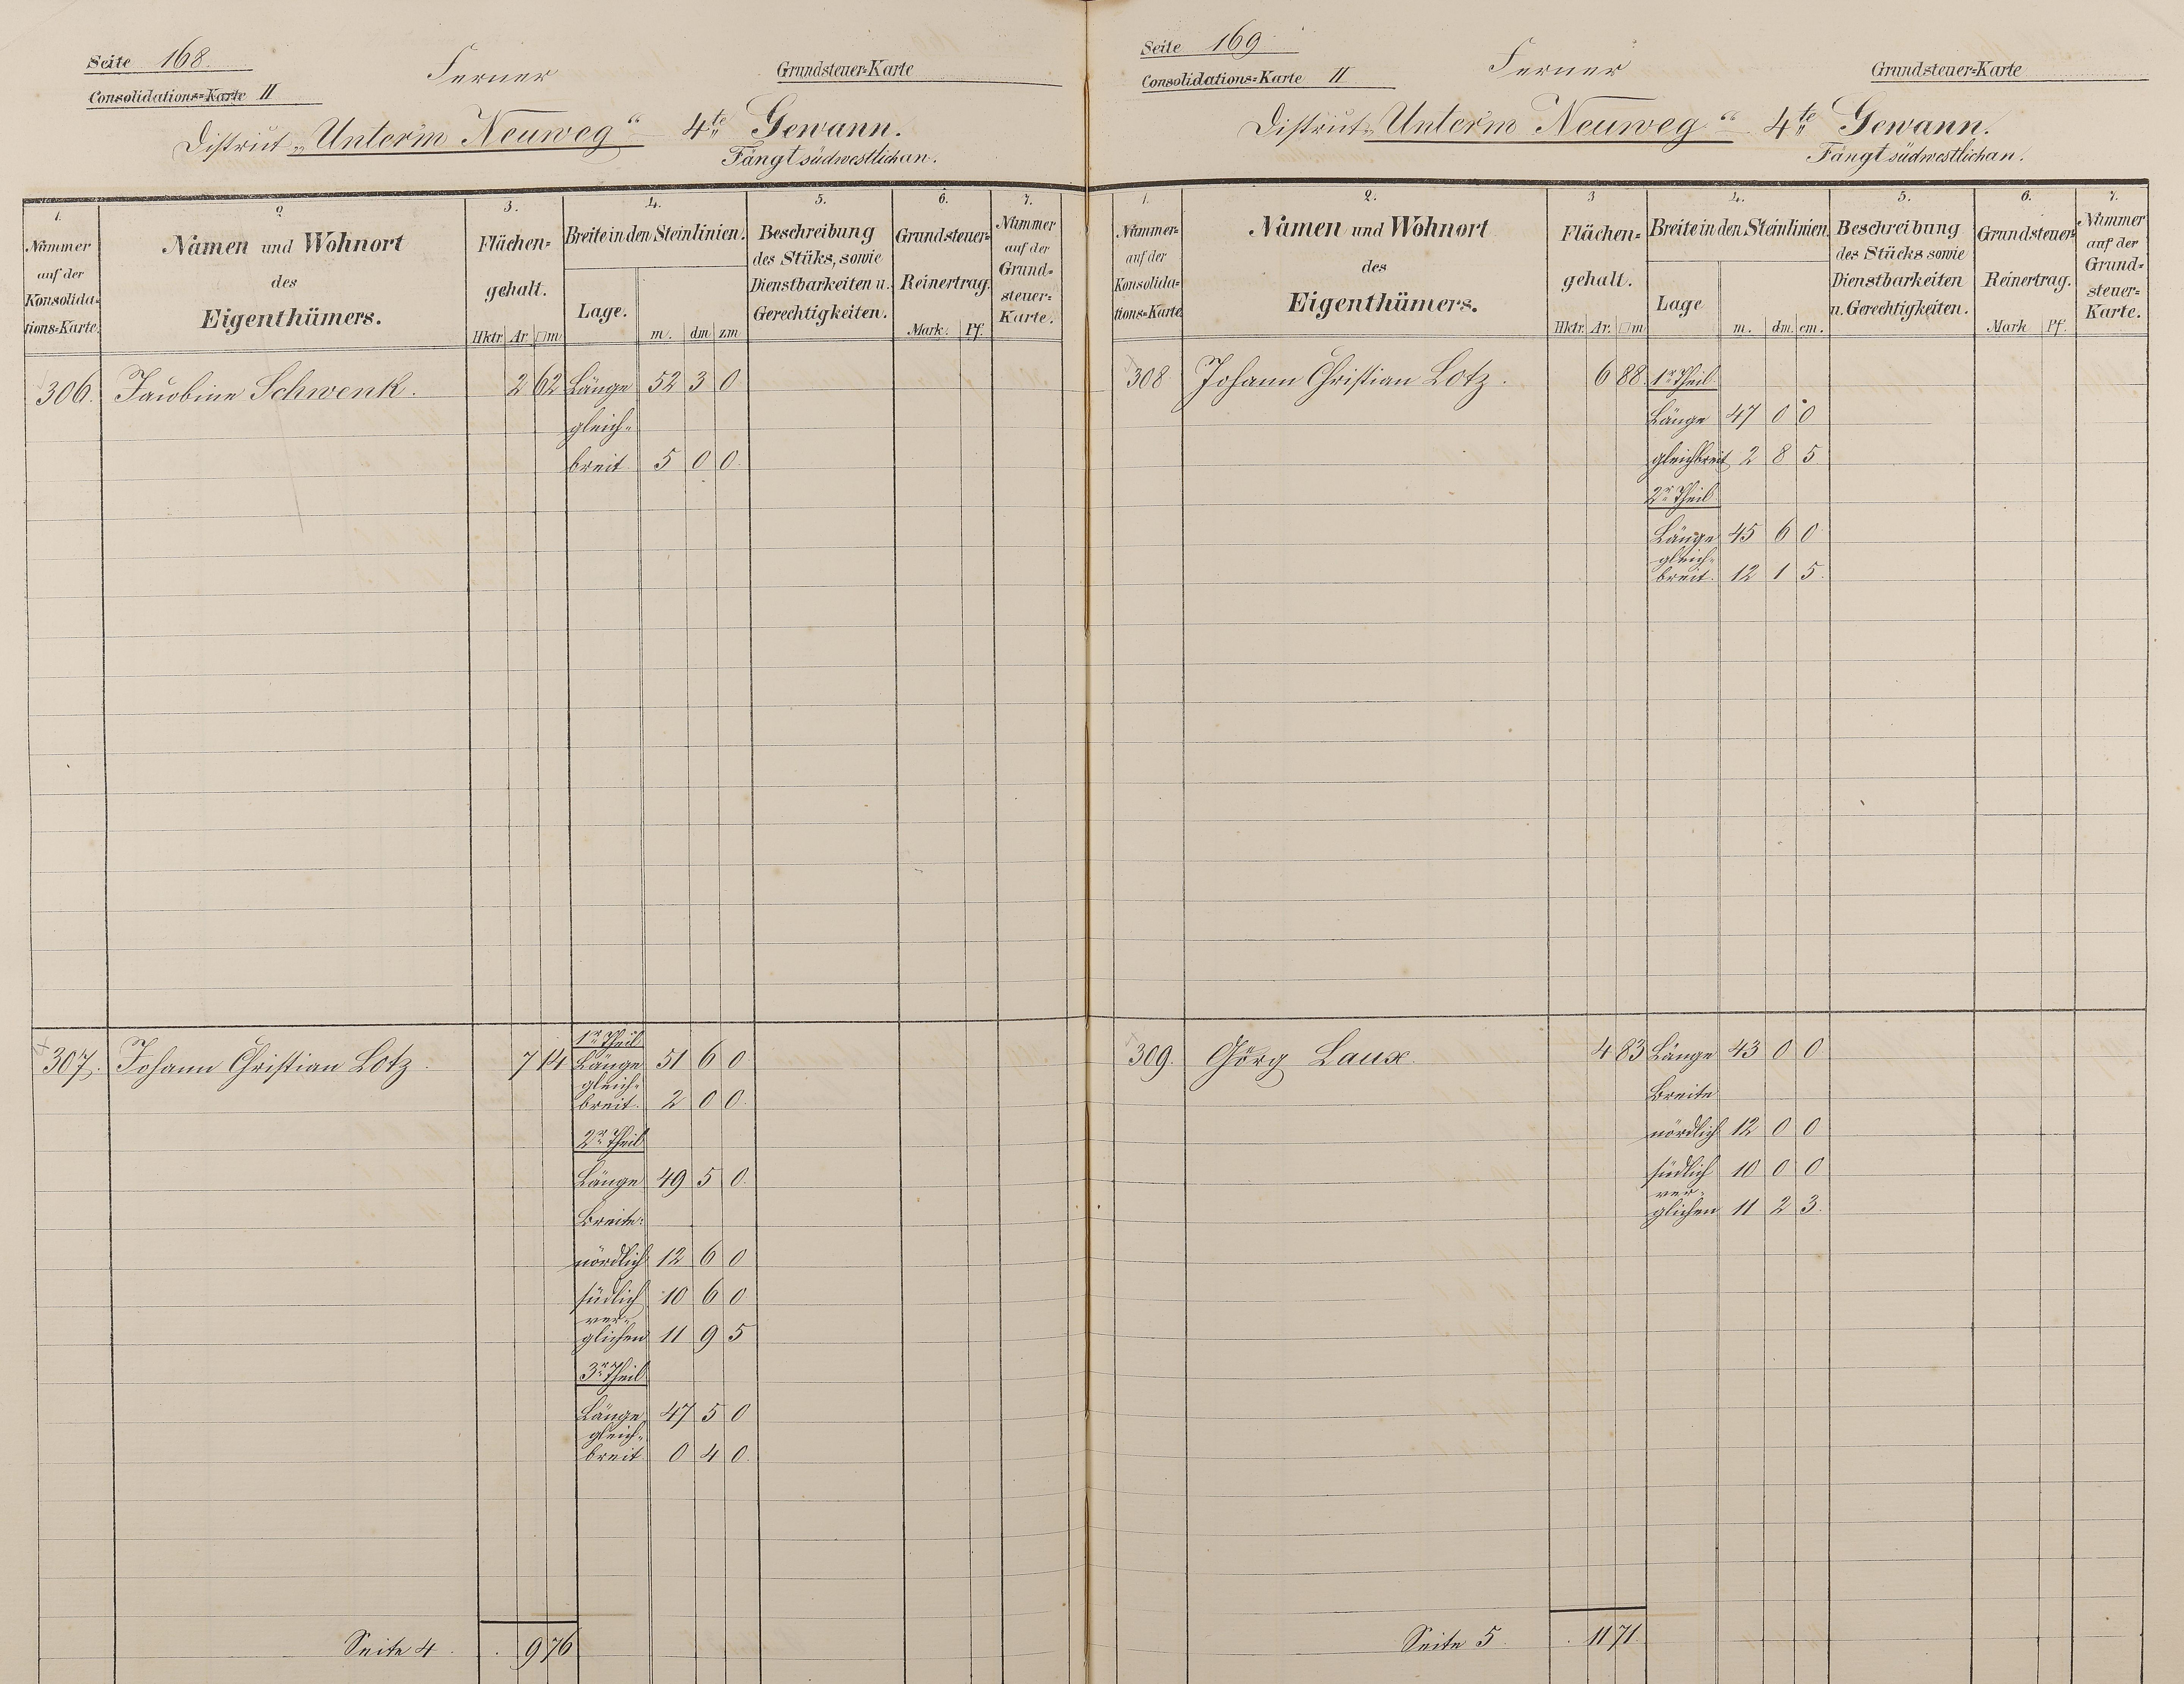 Seite 168.
Consolidations=Karte II
Ferner
Grundsteuer=Karte
District „Unter'm Neuweg“ 4te Gewann.
Fängt südwestlich an.
1. 2. 3. 4. 5. 6. 7.
Nummer auf der Konsolidations=Karte.
Namen und Wohnort des Eigenthümers.
Flächen=gehalt.
Hktr. Ar. □m
Breite in den Steinlinien.
Lage. m. dm zm
Beschreibung des Stüks, sowie Dienstbarkeiten u. Gerechtigkeiten.
Grundsteuer= Reinertrag.
Mark. Pf.
Nummer auf der Grund=steuer=Karte.
306. Jacobine Schwenk. 2 62 Länge 52 3 0
gleich=
breit 5 0 0.
307. Johann Christian Lotz. 7 14
1r Theil
Länge 51 6 0
gleich=
breit. 2 0 0.
2r Theil
Länge 49 5 0.
Breite:
nördlich 12 6 0
südlich 10 6 0
ver=
glichen 11 9 5
3r Theil
Länge 47 5 0
gleich=
breit 0 4 0.
Seite 4. . 9 76
Seite 169.
Consolidations=Karte II
Ferner
Grundsteuer=Karte
District „Unter'm Neuweg“ 4te Gewann.
Fängt südwestlich an.
1. 2. 3 4. 5. 6. 7.
Nummer= auf der Konsolida=tions=Karte
Namen und Wohnort des Eigenthümers.
Flächen=gehalt.
Hktr. Ar. □m
Breite in den Steinlinien.
Lage m. dm. cm.
Beschreibung des Stücks sowie Dienstbarkeiten u. Gerechtigkeiten.
Grundsteuer= Reinertrag.
Mark Pf.
Nummer auf der Grund=steuer=Karte.
308 Johann Christian Lotz. 6 88. 1r Theil
Länge 47 0 0
gleichbreit 2 8 5.
2r Theil
Länge 45 6 0
gleich=
breit. 12 1 5.
309. Görg Laux. 4 83 Länge 43 0 0
Breite
nördlich 12 0 0
südlich 10 0 0
ver=
glichen 11 2 3.
Seite 5. . 11 71.